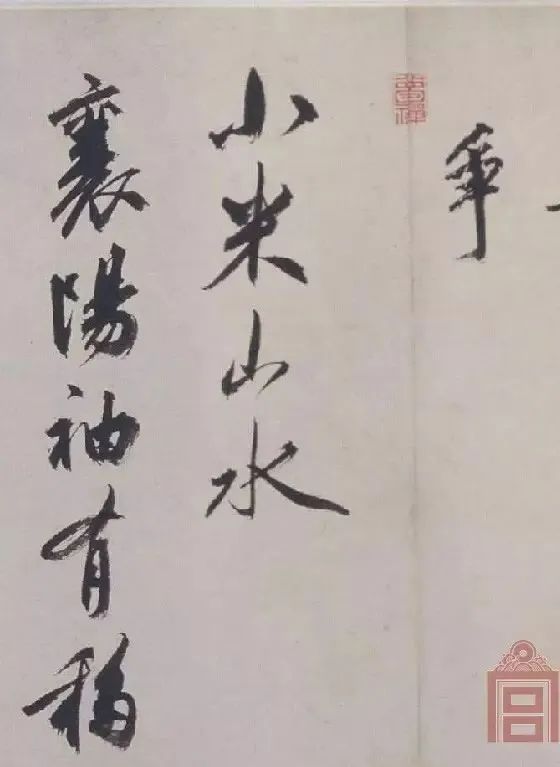 小米山水
襄陽袖有移